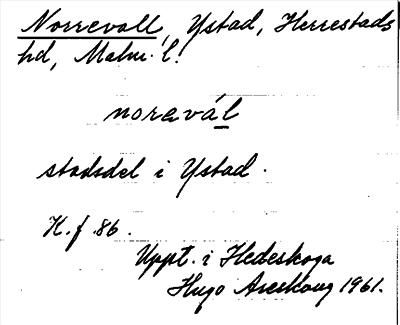 Norrevall, Ystad, Herrestads
hd, Malm. l.
noravál
stadsdel i Ystad.
H. f. 86.
Uppt. i Hedeskoga
Hugo Areskoug 1961.